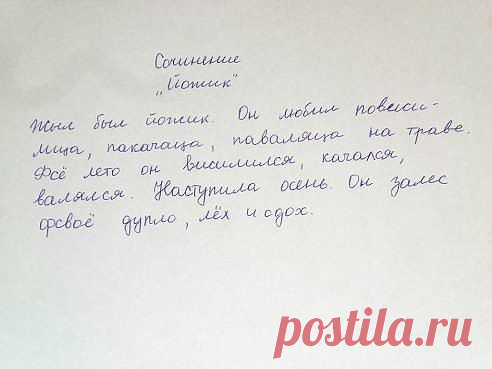 Сочинение
„Йожик“
Жыл был йожик. Он любил повесили-
мица, пакачаца, паваляца на траве.
Фсё лето он висилился, качался,
валялся. Наступила осень. Он залес
фсваё дупло, лёх и сдох.
postila.ru